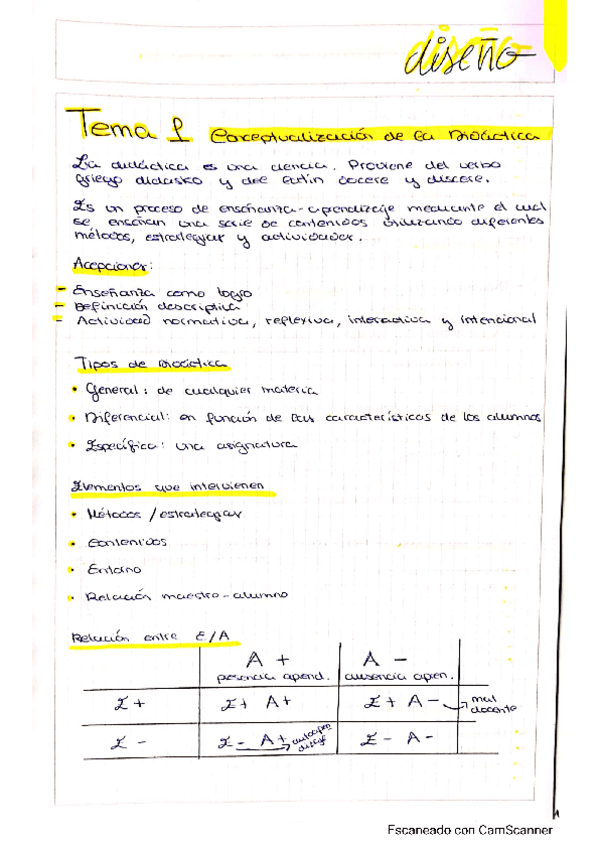 diseño
Tema 1 Conceptualización de la Didáctica
La didáctica es una ciencia. Proviene del verbo
griego didasko y del latín docere y discere.
Es un proceso de enseñanza-aprendizaje mediante el cual
se enseñan una serie de contenidos utilizando diferentes
métodos, estrategias y actividades.
Acepciones:
- Enseñanza como logro
- Definición descriptiva
- Actividad normativa, reflexiva, interactiva y intencional
Tipos de Didáctica
• General: de cualquier materia
• Diferencial: en función de las características de los alumnos
• Específica: una asignatura
Elementos que intervienen
• Métodos / estrategias
• Contenidos
• Entorno
• Relación maestro-alumno
Relación entre E/A
A + A -
presencia aprend. ausencia apren.
E + E+ A+ E+ A- → mal docente
E - E- A+ → autoaprendizaje E- A-
1
Escaneado con CamScanner